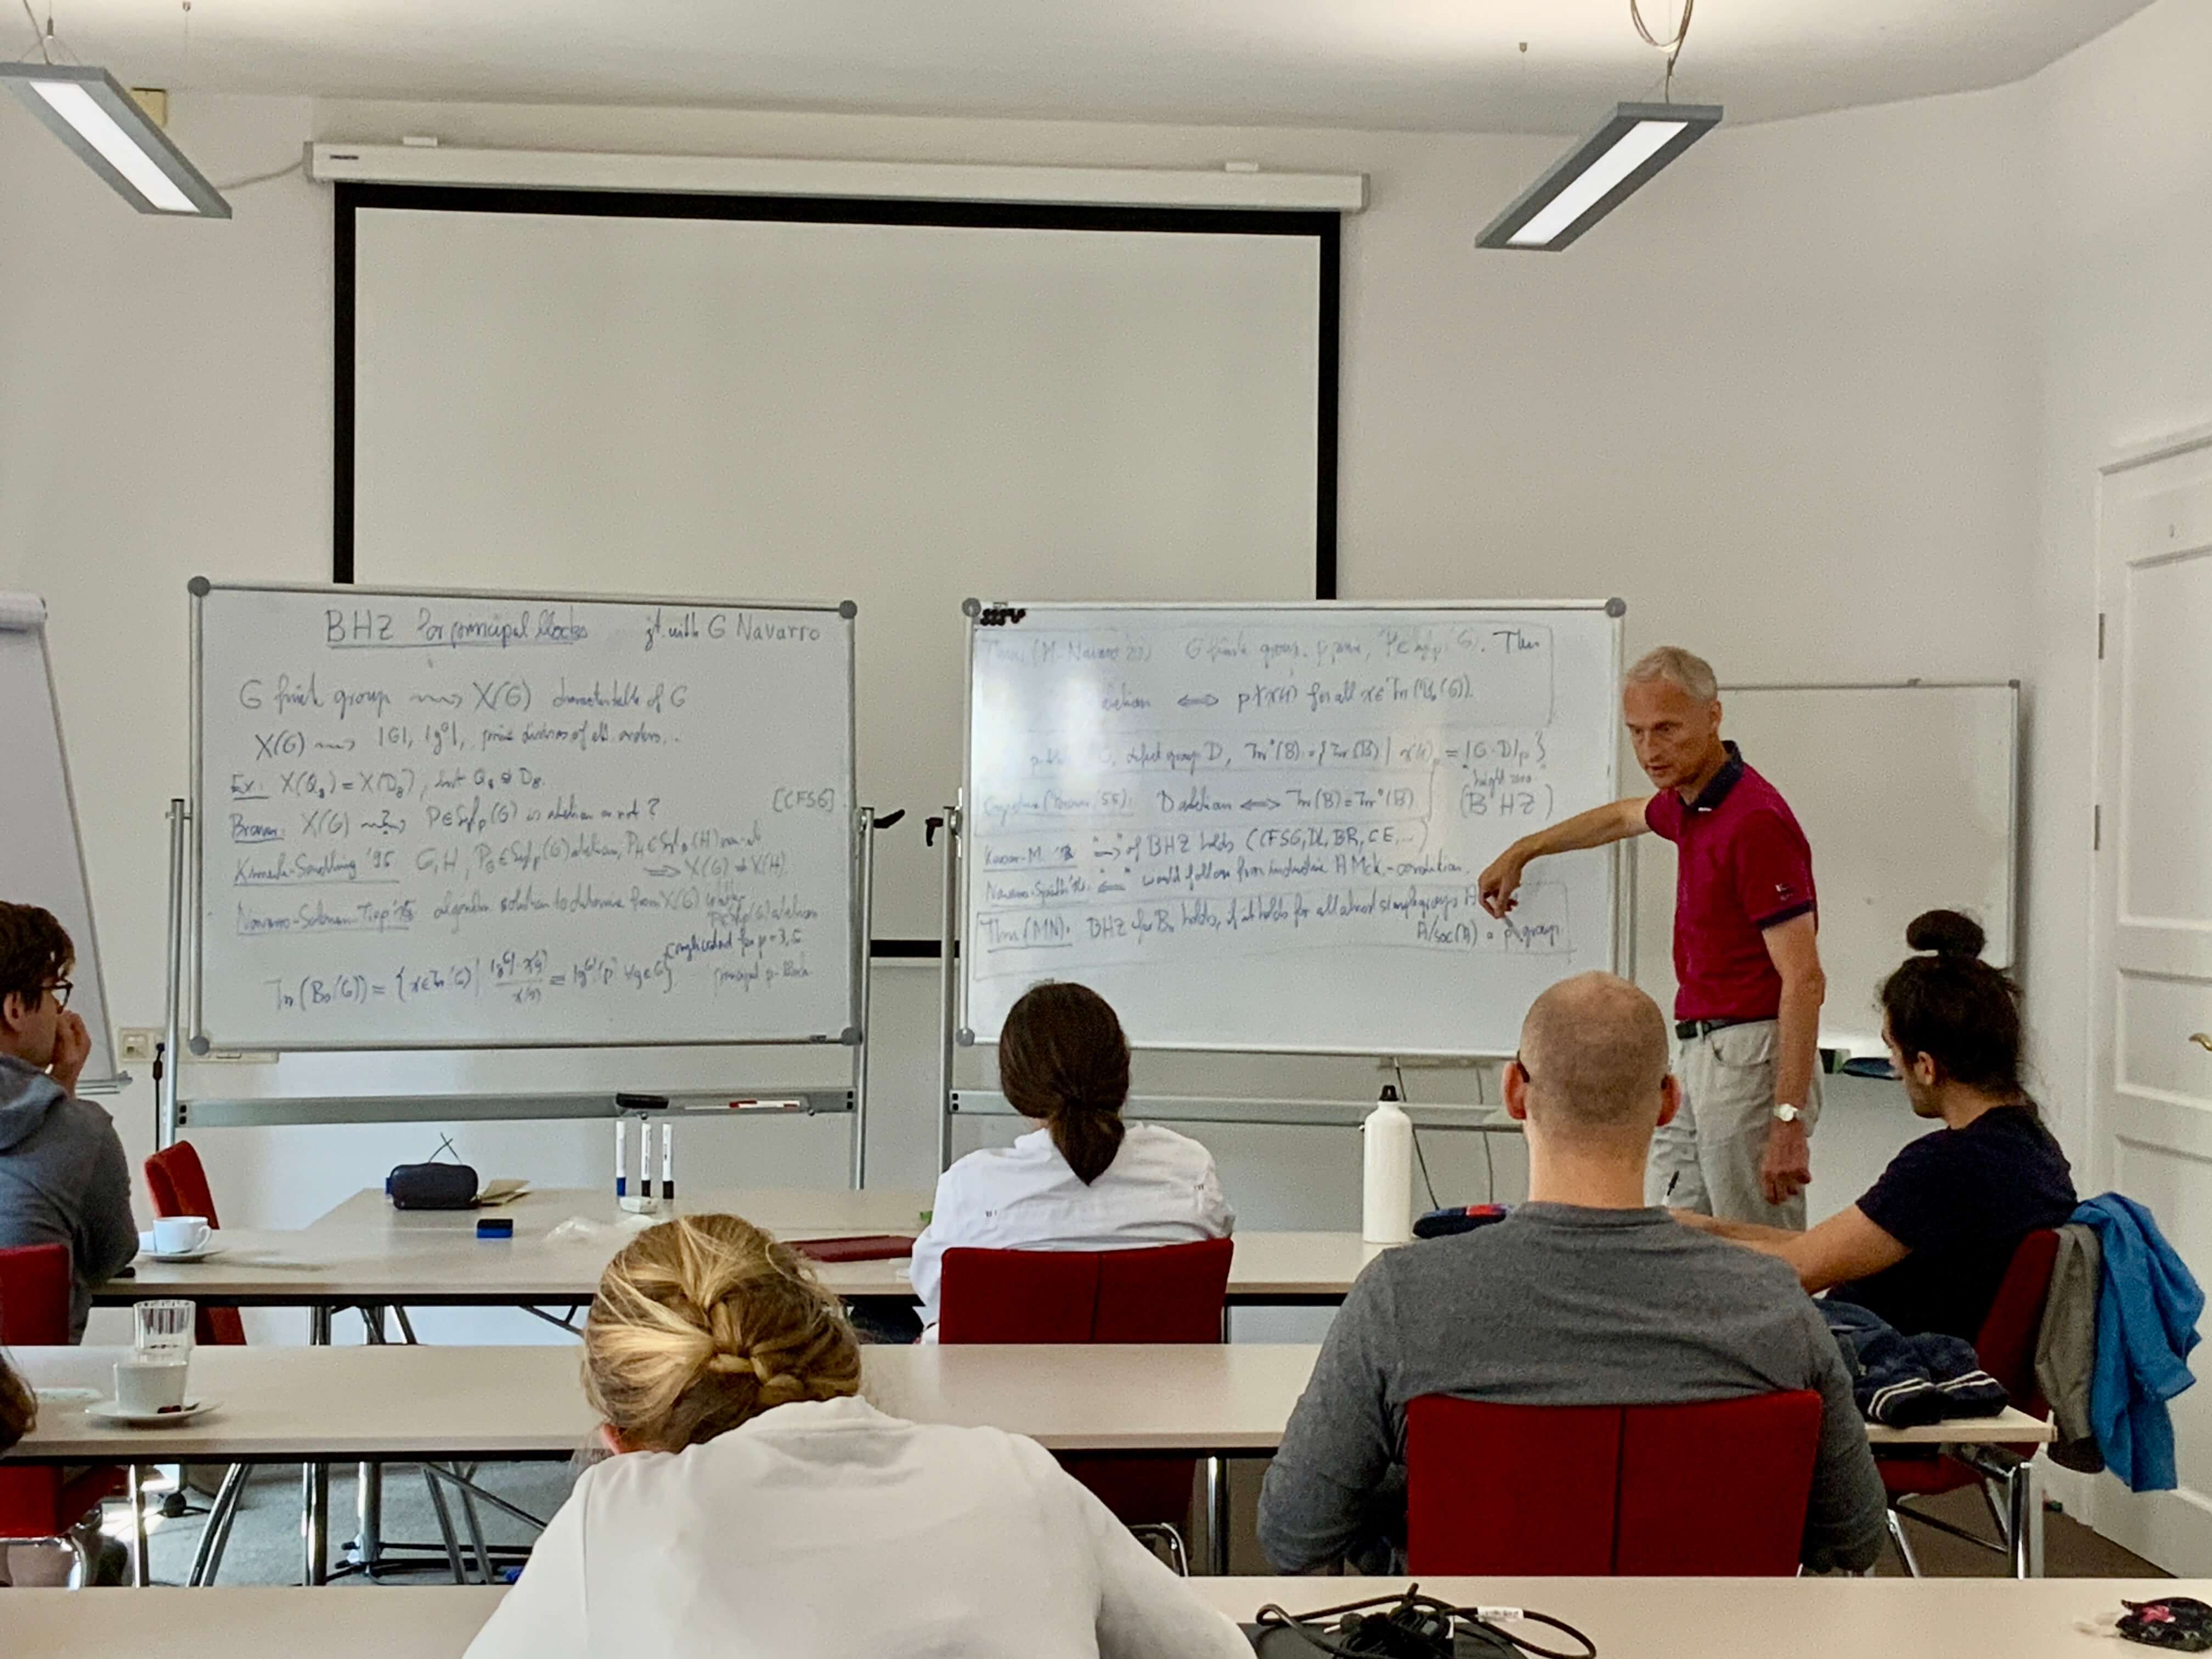 BHZ for principal blocks jt. with G Navarro
G finite group ⟿ X(G) character table of G
X(G) ⟿ |G|, |g^G|, prime divisors of elt. orders...
Ex: X(Q₈) = X(D₈), but Q₈ ≇ D₈.
[CFSG]
Brauer: X(G) ⟿? P∈Syl_p(G) is abelian or not?
Kimmerle-Sandling '95 G, H, P_G ∈ Syl_p(G) abelian, P_H ∈ Syl_p(H) non-ab
⟹ X(G) ≠ X(H).
Navarro-Solomon-Tiep '15 algorithm solution to determine from X(G) whether
P∈Syl_p(G) abelian
complicated for p=3,5
Irr(B₀(G)) = {χ∈Irr(G) | |g^G|·χ(g)/χ(1) ≡ |g^G| (p) ∀g∈G} principal p-block
Thm (M-Navarro) G finite group, p prime, P∈Syl_p(G). Then
abelian ⟺ p∤χ(1) for all χ∈Irr(B₀(G)).
defect group D, Irr⁰(B) = {Irr(B) | χ(1)_p = |G:D|_p}
"height zero"
(Brauer '55): D abelian ⟺ Irr(B) = Irr⁰(B) (BHZ)
Kessar-M. "⟹" of BHZ holds (CFSG, DL, BR, CE, ...)
Navarro-Späth "⟸" would follow from inductive AMcK-condition.
Thm (MN): BHZ for B₀ holds, if it holds for all almost simple groups A
A/soc(A) a p-group